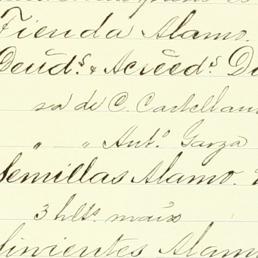 Tienda Alamo.
Deuds. & Acreeds. D
sa de C. Castellan
" " Anto. Garza
Semillas Alamo.
3 hlts. maiz
limientes Alam